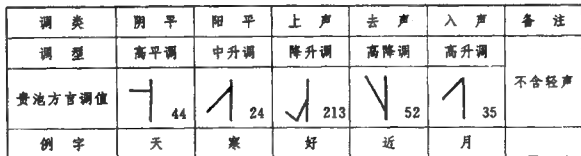 调类 阴平 阳平 上声 去声 入声 备注
调型 高平调 中升调 降升调 高降调 高升调 不含轻声
贵池方言调值 44 24 213 52 35
例字 天 寒 好 近 月